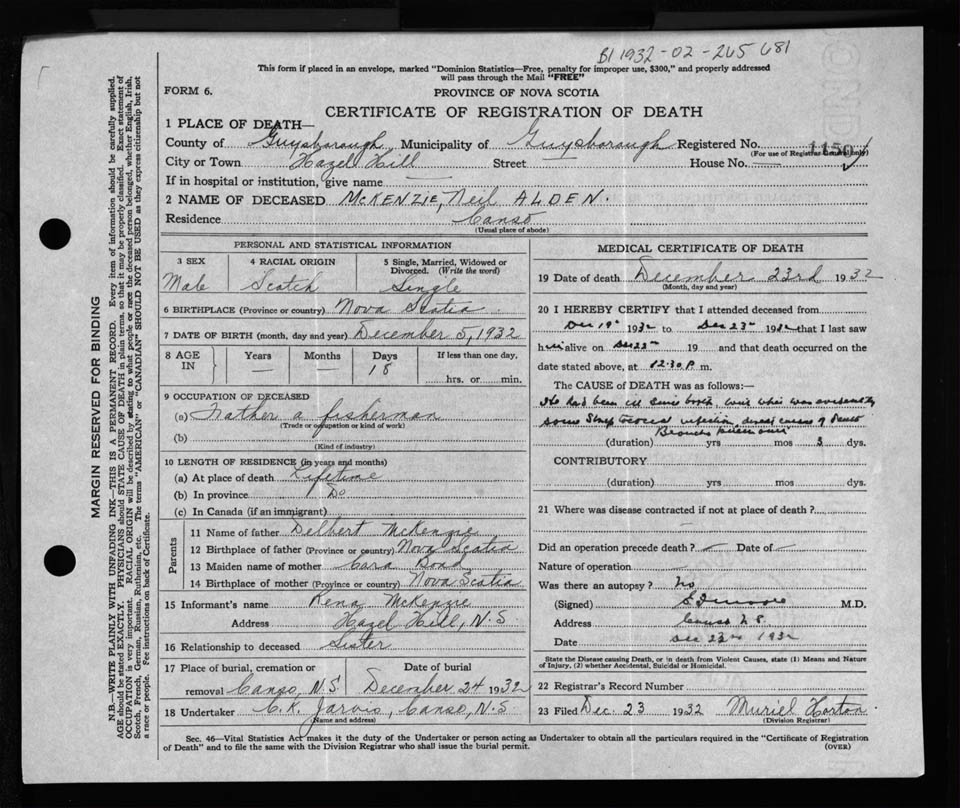 B1 1932-02-265 681
This form if placed in an envelope, marked "Dominion Statistics—Free, penalty for improper use, $300," and properly addressed
will pass through the Mail "FREE"
FORM 6.
PROVINCE OF NOVA SCOTIA
CERTIFICATE OF REGISTRATION OF DEATH
1 PLACE OF DEATH—
County of Guysborough, Municipality of Guysborough Registered No. 1150
(For use of Registrar General only)
City or Town Hazel Hill Street House No.
If in hospital or institution, give name —
2 NAME OF DECEASED McKENZIE, Neil ALDEN.
Residence Canso
(Usual place of abode)
PERSONAL AND STATISTICAL INFORMATION
3 SEX 4 RACIAL ORIGIN 5 Single, Married, Widowed or
Divorced. (Write the word)
Male Scotch Single
6 BIRTHPLACE (Province or country) Nova Scotia
7 DATE OF BIRTH (month, day and year) December 5, 1932
8 AGE IN Years Months Days If less than one day,
— — 18 hrs. or min.
9 OCCUPATION OF DECEASED
(a) Father a fisherman
(Trade or occupation or kind of work)
(b)
(Kind of industry)
10 LENGTH OF RESIDENCE (in years and months)
(a) At place of death Lifetime
(b) In province Do
(c) In Canada (if an immigrant)
Parents
11 Name of father Delbert McKenzie
12 Birthplace of father (Province or country) Nova Scotia
13 Maiden name of mother Cara Bond
14 Birthplace of mother (Province or country) Nova Scotia
15 Informant's name Rena McKenzie
Address Hazel Hill, N.S.
16 Relationship to deceased Sister
17 Place of burial, cremation or Date of burial
removal Canso, N.S. December 24 1932
18 Undertaker C. K. Jarvis, Canso, N.S.
(Name and address)
MEDICAL CERTIFICATE OF DEATH
19 Date of death December 23rd 1932
(Month, day and year)
20 I HEREBY CERTIFY that I attended deceased from
Dec 19th 1932 to Dec 23rd 1932 that I last saw
him alive on Dec 23rd 19 and that death occurred on the
date stated above, at 12.30 P m.
The CAUSE of DEATH was as follows:—
He had been ill since birth, with what was evidently
some infection, direct cause of death
Broncho pneumonia
(duration) yrs mos 3 dys.
CONTRIBUTORY
(duration) yrs mos. dys.
21 Where was disease contracted if not at place of death?
—
Did an operation precede death? — Date of —
Nature of operation —
Was there an autopsy? No
(Signed) Moore M.D.
Address Canso N.S.
Date Dec 23rd 1932
State the Disease causing Death, or in death from Violent Causes, state (1) Means and Nature
of Injury, (2) whether Accidental, Suicidal or Homicidal.
22 Registrar's Record Number
23 Filed Dec. 23 1932 Muriel Horton
(Division Registrar)
Sec. 46—Vital Statistics Act makes it the duty of the Undertaker or person acting as Undertaker to obtain all the particulars required in the "Certificate of Registration
of Death" and to file the same with the Division Registrar who shall issue the burial permit. (OVER)
MARGIN RESERVED FOR BINDING
N.B.—WRITE PLAINLY WITH UNFADING INK—THIS IS A PERMANENT RECORD. Every item of information should be carefully supplied.
AGE should be stated EXACTLY. PHYSICIANS should STATE CAUSE OF DEATH in plain terms, so that it may be properly classified. Exact statement of
OCCUPATION is very important. RACIAL ORIGIN will be described by stating to what people or race the deceased person belonged, whether English, Irish,
Scotch, French, German, Russian, Ruthenian, etc. The terms "AMERICAN" or "CANADIAN" SHOULD NOT BE USED as they express citizenship but not
a race or people. Fee instructions on back of Certificate.